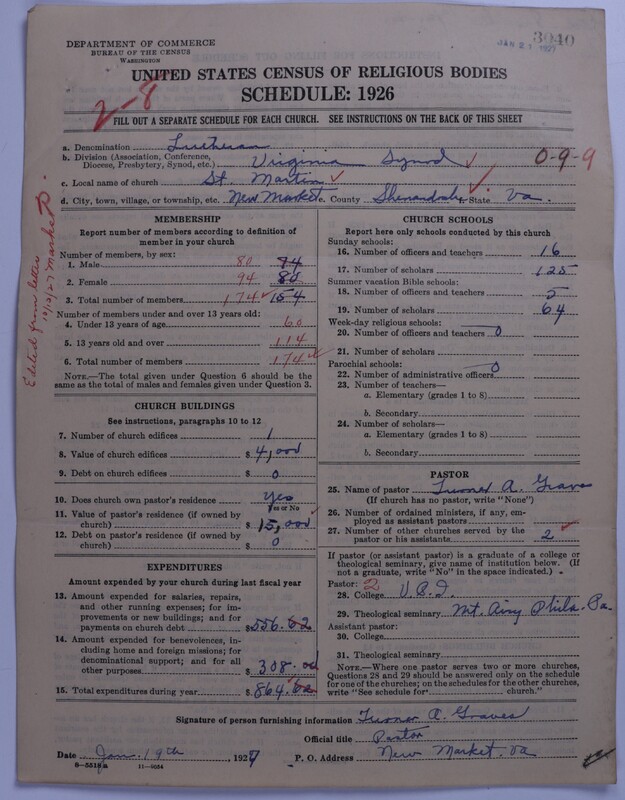 DEPARTMENT OF COMMERCE
BUREAU OF THE CENSUS
WASHINGTON
3040
JAN 21 1927
UNITED STATES CENSUS OF RELIGIOUS BODIES
SCHEDULE: 1926
2-8
FILL OUT A SEPARATE SCHEDULE FOR EACH CHURCH. SEE INSTRUCTIONS ON THE BACK OF THIS SHEET
a. Denomination Lutheran
b. Division (Association, Conference, Diocese, Presbytery, Synod, etc.) Virginia Synod 0-9-9
c. Local name of church St. Martin
d. City, town, village, or township, etc. New Market e. County Shenandoah State Va.
Edited from letter 10/12/27 Market
MEMBERSHIP
Report number of members according to definition of
member in your church
Number of members, by sex:
1. Male 80 74
2. Female 94 80
3. Total number of members 174 154
Number of members under and over 13 years old:
4. Under 13 years of age 60
5. 13 years old and over 114
6. Total number of members 174
NOTE.—The total given under Question 6 should be
same as the total of males and females given under Question 3.
CHURCH BUILDINGS
See instructions, paragraphs 10 to 12
7. Number of church edifices 1
8. Value of church edifices $ 4,000
9. Debt on church edifices $ 0
10. Does church own pastor's residence Yes
Yes or No
11. Value of pastor's residence (if owned by
church) $ 15,000
12. Debt on pastor's residence (if owned by
church) $ 0
EXPENDITURES
Amount expended by your church during last fiscal year
13. Amount expended for salaries, repairs,
and other running expenses; for im-
provements or new buildings; and for
payments on church debt $ 556.62
14. Amount expended for benevolences, in-
cluding home and foreign missions; for
denominational support; and for all
other purposes $ 308.00
15. Total expenditures during year $ 864.62
CHURCH SCHOOLS
Report here only schools conducted by this church
Sunday schools:
16. Number of officers and teachers 16
17. Number of scholars 125
Summer vacation Bible schools:
18. Number of officers and teachers 5
19. Number of scholars 64
Week-day religious schools:
20. Number of officers and teachers 0
21. Number of scholars
Parochial schools:
22. Number of administrative officers 0
23. Number of teachers—
a. Elementary (grades 1 to 8)
b. Secondary
24. Number of scholars—
a. Elementary (grades 1 to 8)
b. Secondary
PASTOR
25. Name of pastor Turner A. Graves
(If church has no pastor, write "None")
26. Number of ordained ministers, if any, em-
ployed as assistant pastors
27. Number of other churches served by the
pastor or his assistants 2
If pastor (or assistant pastor) is a graduate of a college or
theological seminary, give name of institution below. (If
not a graduate, write "No" in the space indicated.)
Pastor: 2
28. College V.P.I.
29. Theological seminary Mt. Airy Phila. Pa.
Assistant pastor:
30. College
31. Theological seminary
NOTE.—Where one pastor serves two or more churches,
Questions 28 and 29 should be answered only on the schedule
for one of the churches; on the schedules for the other churches,
write "See schedule for church."
Signature of person furnishing information Turner A. Graves
Official title Pastor
Date Jan. 19th, 1927 P. O. Address New Market Va
11—4654